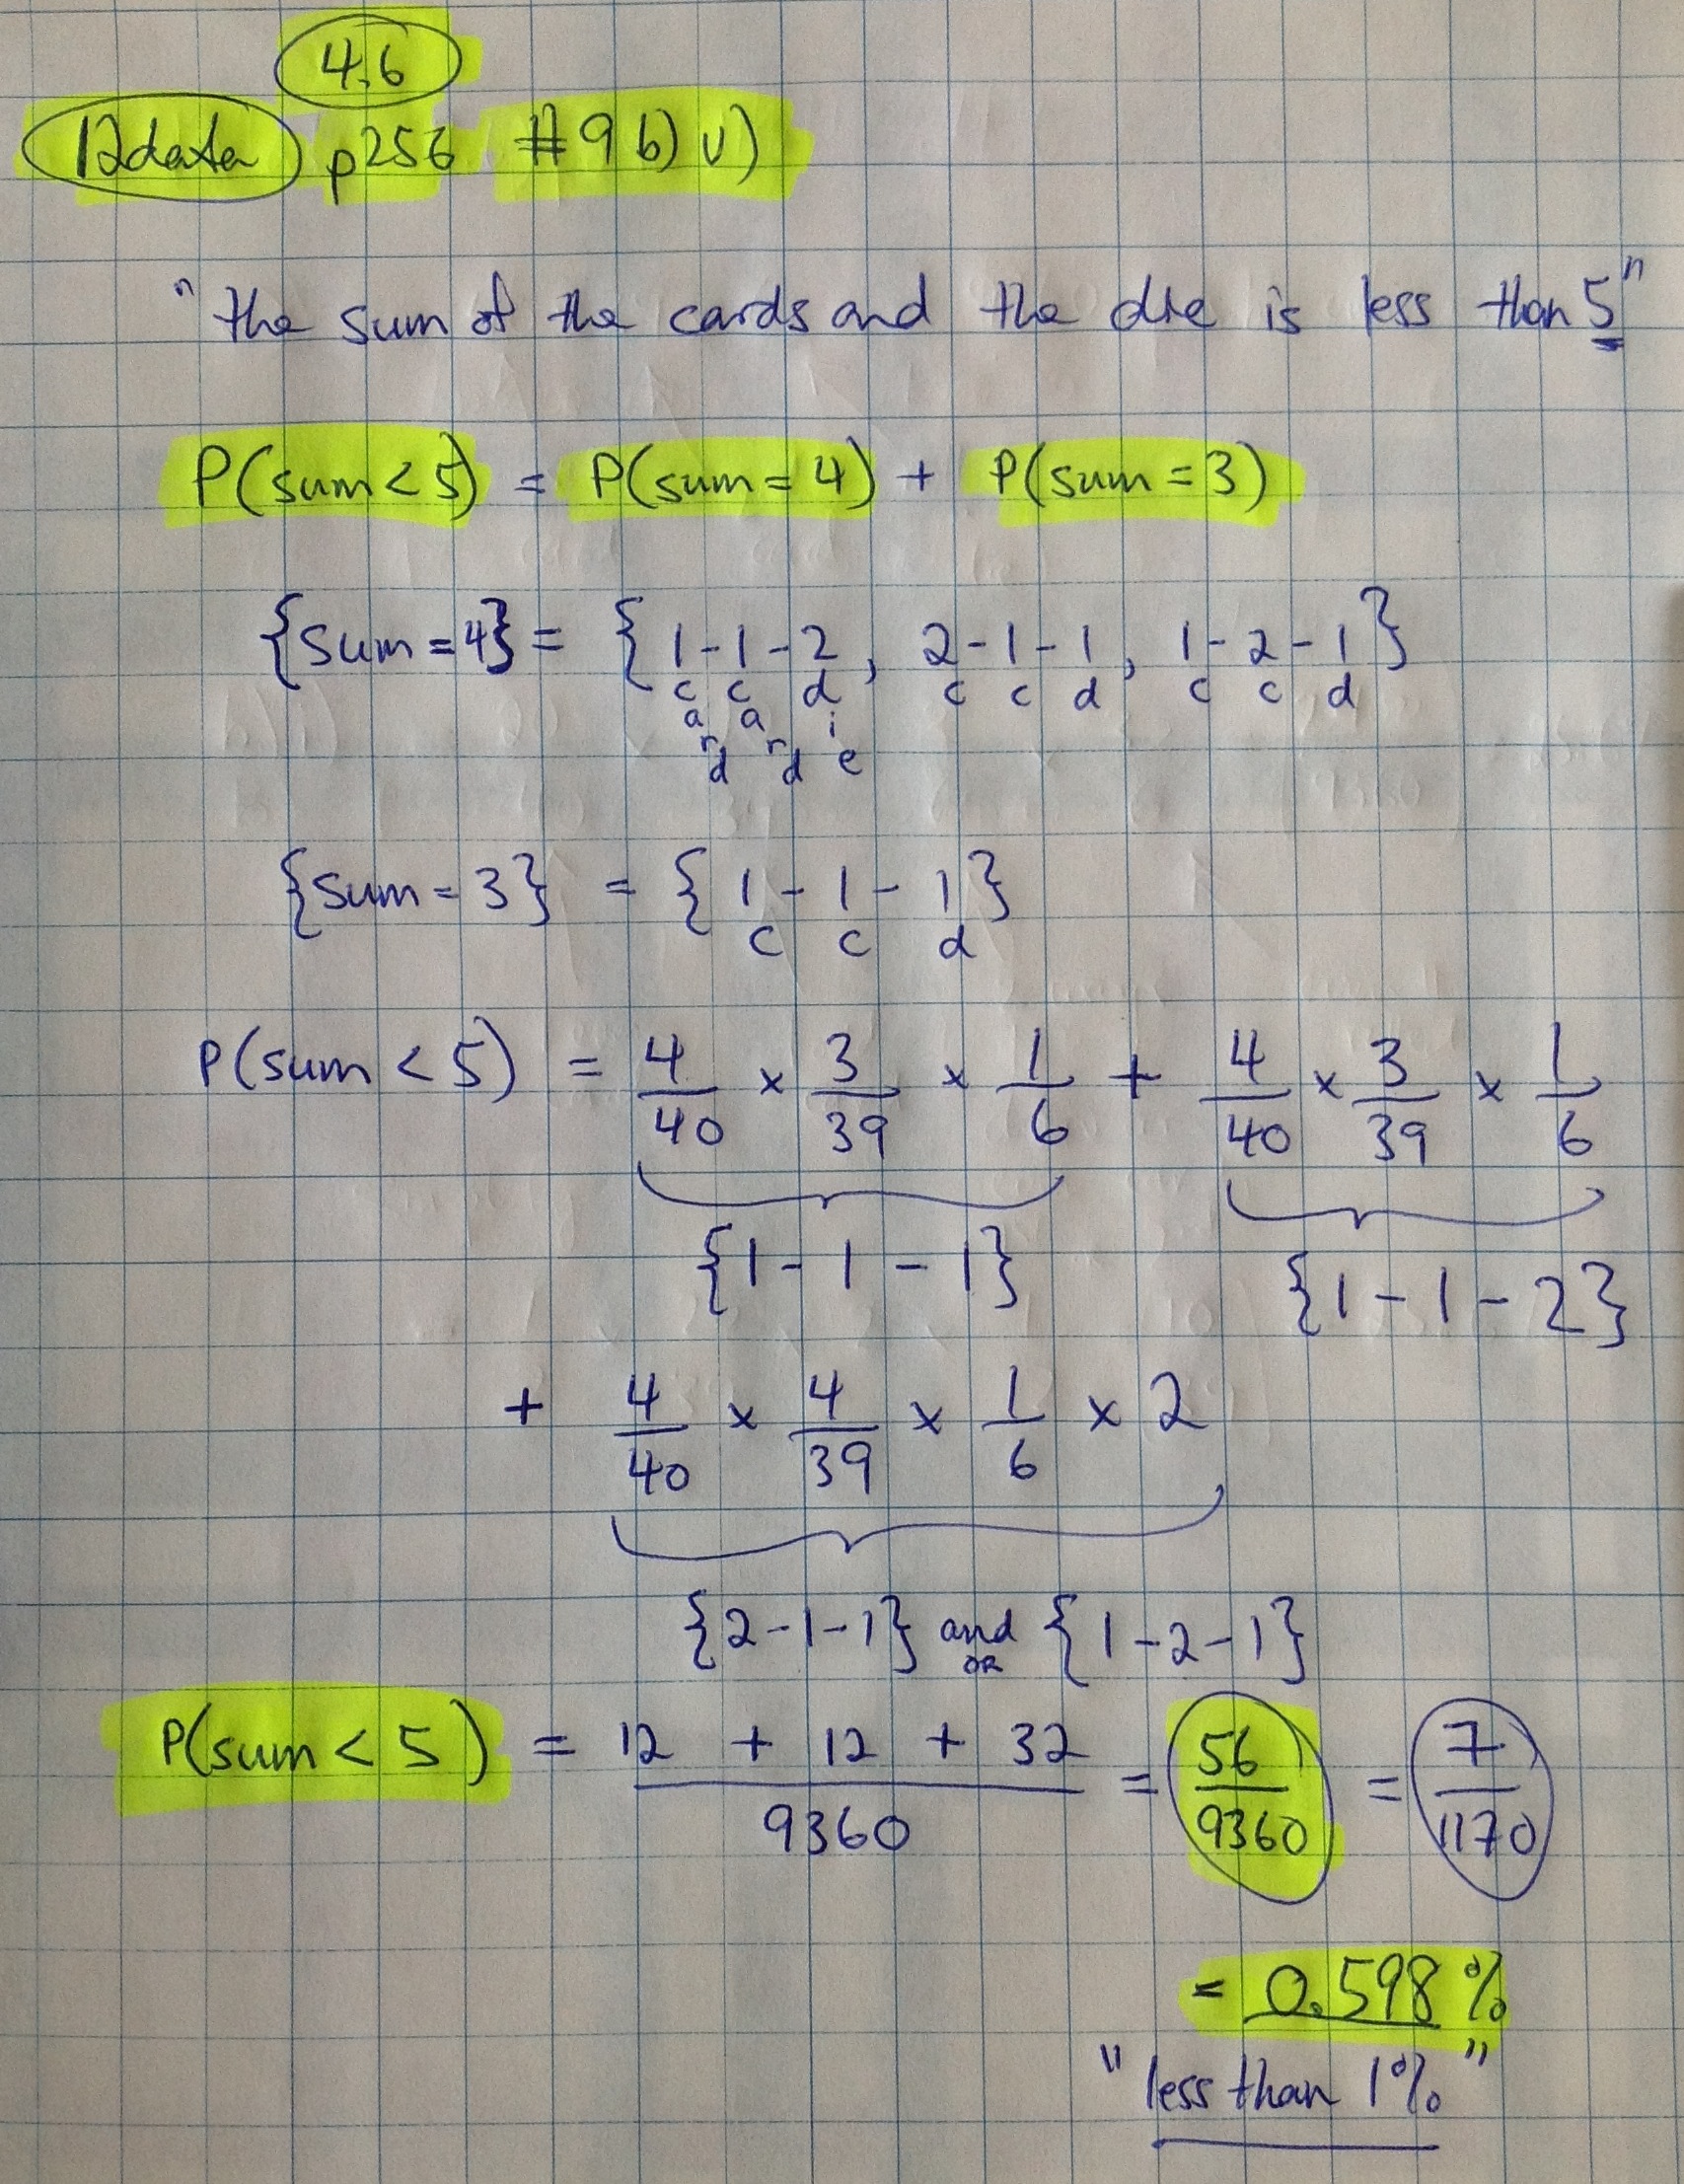 4.6
12data p256 #9 b) v)
"the sum of the cards and the die is less than 5"
P(sum < 5) = P(sum = 4) + P(sum = 3)
{sum = 4} = { 1 - 1 - 2 , 2 - 1 - 1 , 1 - 2 - 1 }
card card die c c d c c d
{sum = 3} = { 1 - 1 - 1 }
c c d
P(sum < 5) = 4/40 × 3/39 × 1/6 + 4/40 × 3/39 × 1/6
{1 - 1 - 1} {1 - 1 - 2}
+ 4/40 × 4/39 × 1/6 × 2
{2 - 1 - 1} and {1 - 2 - 1}
OR
P(sum < 5) = 12 + 12 + 32 / 9360 = 56/9360 = 7/1170
= 0.598 %
"less than 1%"